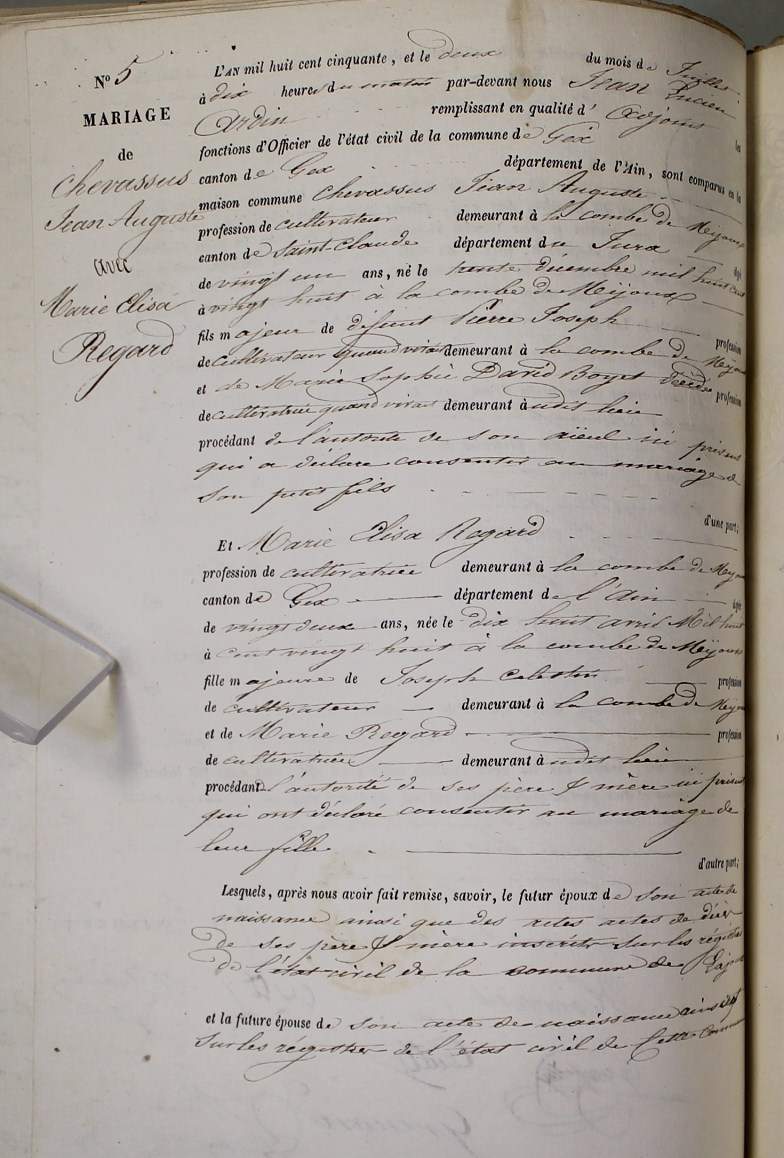 N° 5
MARIAGE
de
Chevassus
Jean Auguste
avec
Marie Elisa
Regard
L'AN mil huit cent cinquante, et le deux du mois de Juillet
à dix heures du matin par-devant nous Jean Lucien
Ardin remplissant en qualité d' Adjoint les
fonctions d'Officier de l'état civil de la commune de Gex
canton de Gex département de l'Ain, sont comparus en la
maison commune Chevassus Jean Auguste
profession de cultivateur demeurant à la combe de Mijoux
canton de Saint-Claude département du Jura âgé
de vingt un ans, né le trente décembre mil huit cent
à vingt huit à la combe de Mijoux
fils majeur de défunt Pierre Joseph profession
de cultivateur quand vivait demeurant à la combe de Mijoux
et de Marie Sophie David Boyet profession
de cultivatrice quand vivait demeurant à udit lieu
procédant de l'autorité de son aïeul ici présent
qui a déclaré consentir au mariage de
son petit fils
d'une part;
Et Marie Elisa Regard
profession de cultivatrice demeurant à la combe de Mijoux
canton de Gex département de l'Ain âgé
de vingt deux ans, née le dix huit avril Mil huit
à cent vingt huit à la combe de Mijoux
fille majeure de Joseph Celestin profession
de cultivateur demeurant à la combe de Mijoux
et de Marie Regard profession
de cultivatrice demeurant à udit lieu
procédant l'autorité de ses père & mère ici présent
qui ont déclaré consentir au mariage de
leur fille
d'autre part;
Lesquels, après nous avoir fait remise, savoir, le futur époux de son acte de
naissance ainsi que des actes de décès
de ses père & mère inscrits sur les régistres
de l'état civil de la commune de Lajoux
et la future épouse de son acte de naissance
sur les régistres de l'état civil de cette commune